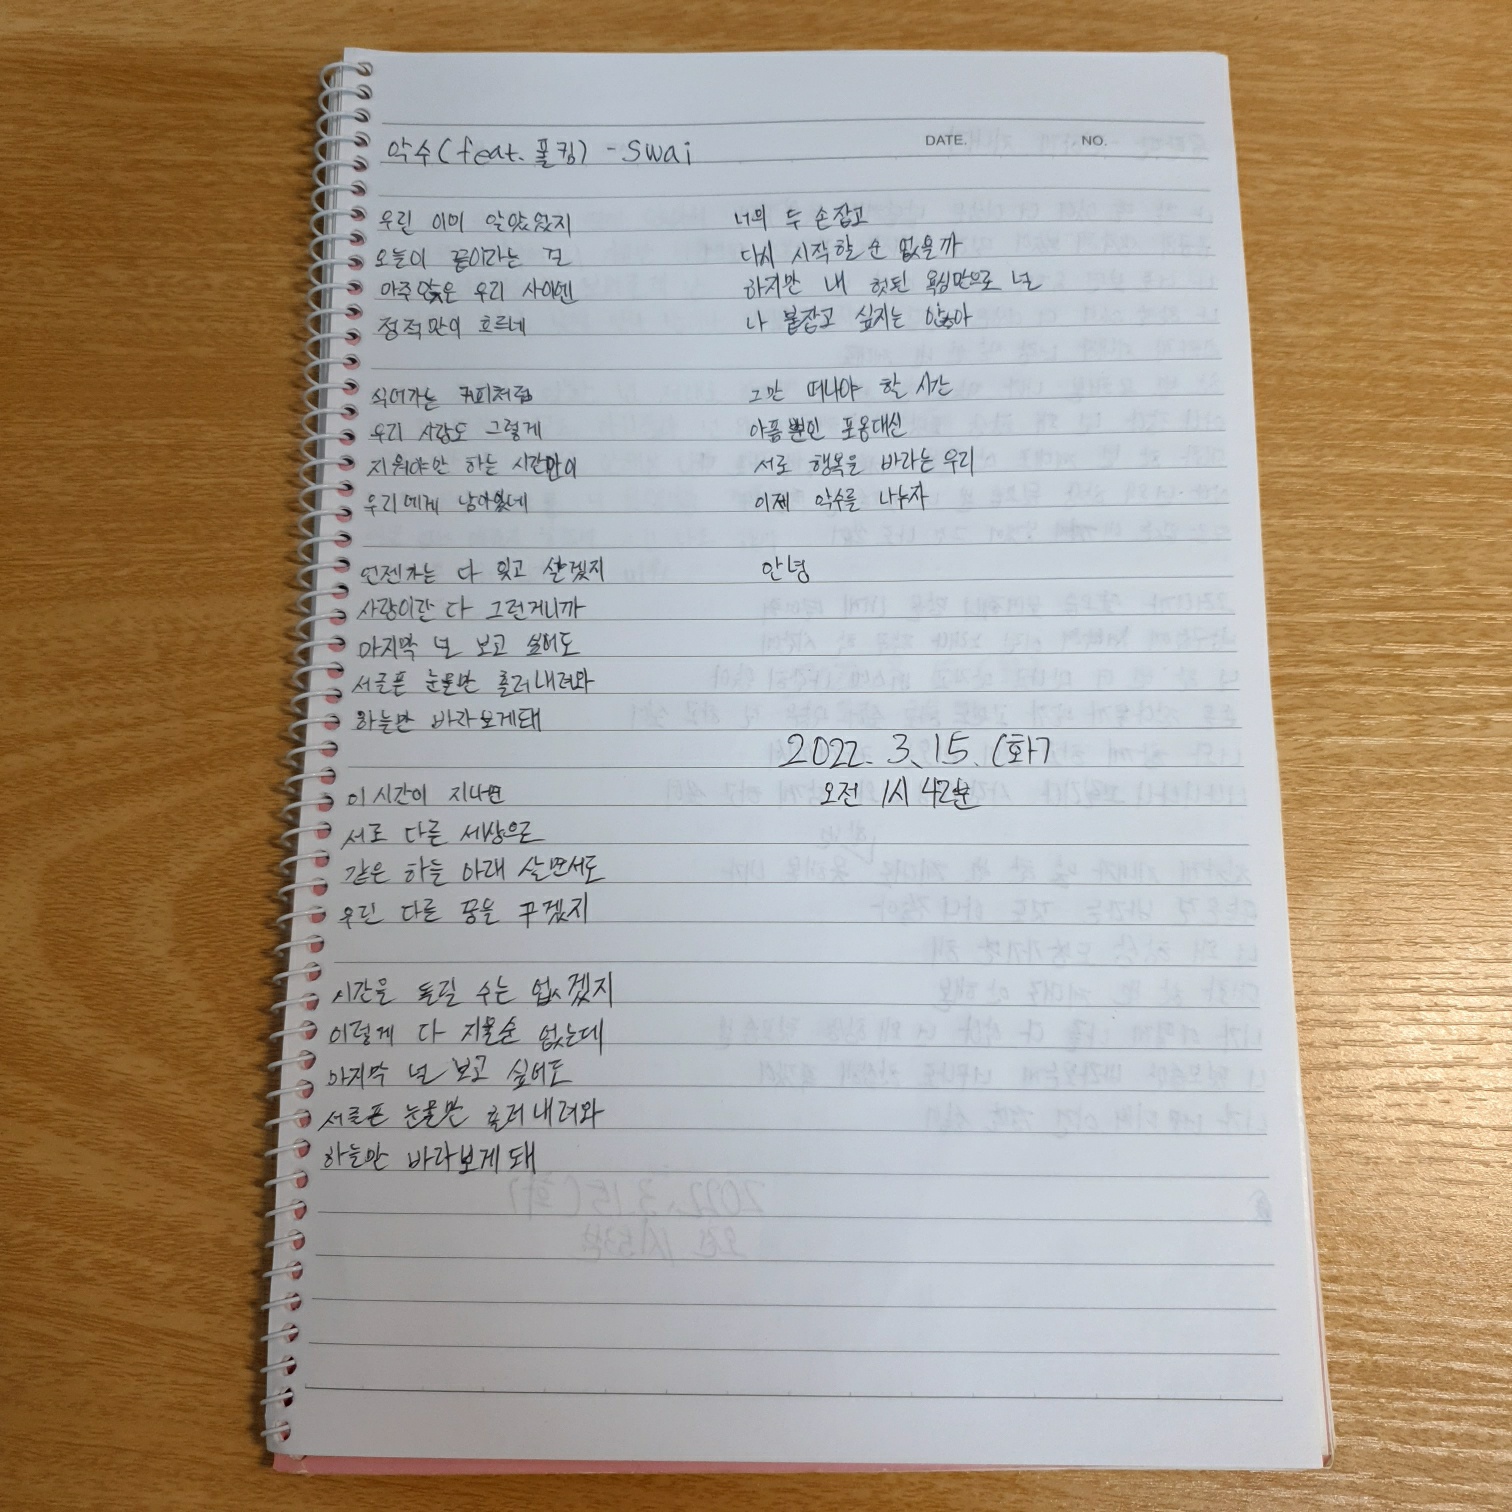 악수(feat.폴킴) - Swai
DATE. NO.
우린 이미 알았었지
오늘이 끝이라는 걸
아주 않은 우리 사이엔
정적만이 흐르네
식어가는 커피처럼
우리 사랑도 그렇게
지워야만 하는 시간만이
우리에게 남아있네
언젠가는 다 잊고 살겠지
사랑이란 다 그런거니까
마지막 널 보고 싶어도
서글픈 눈물만 흘러내려와
하늘만 바라보게돼
이 시간이 지나면
서로 다른 세상으로
같은 하늘 아래 살면서도
우린 다른 꿈을 꾸겠지
시간을 돌릴 수는 없겠지
이렇게 다 지울순 없는데
마지막 널 보고 싶어도
서글픈 눈물만 흘러내려와
하늘만 바라보게돼
너의 두 손잡고
다시 시작할 순 없을까
하지만 내 헛된 욕심만으로 널
나 붙잡고 싶지는 않아
그만 떠나야 할 시간
아픔뿐인 포옹대신
서로 행복을 바라는 우리
이제 악수를 나누자
안녕
2022. 3. 15. (화)
오전 1시 42분